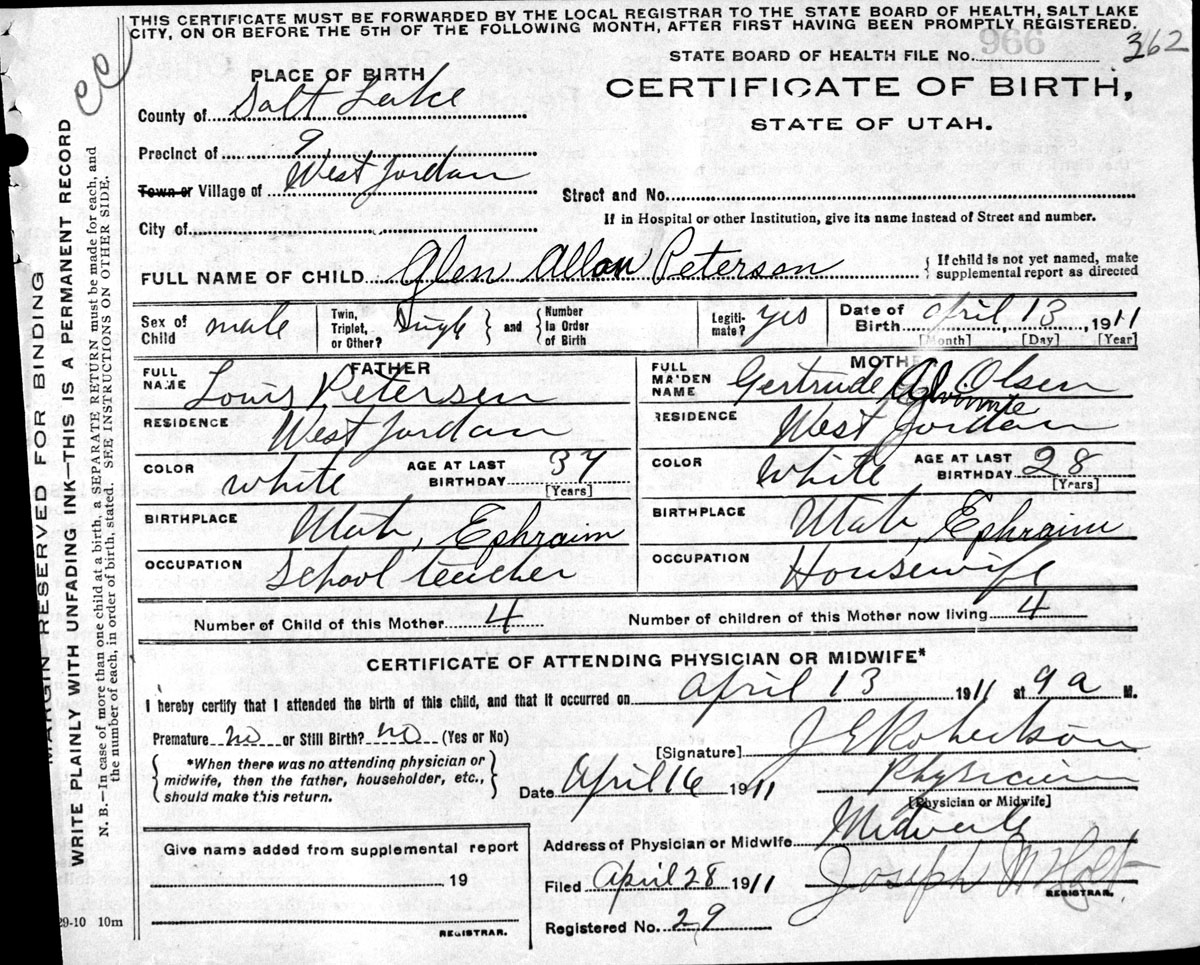 THIS CERTIFICATE MUST BE FORWARDED BY THE LOCAL REGISTRAR TO THE STATE BOARD OF HEALTH, SALT LAKE
CITY, ON OR BEFORE THE 5TH OF THE FOLLOWING MONTH, AFTER FIRST HAVING BEEN PROMPTLY REGISTERED.
STATE BOARD OF HEALTH FILE No. 966 362
PLACE OF BIRTH
CERTIFICATE OF BIRTH,
STATE OF UTAH.
County of Salt Lake
Precinct of 9
Town or Village of West Jordan
Street and No.
If in Hospital or other Institution, give its name instead of Street and number.
City of
FULL NAME OF CHILD Glen Allan Peterson
If child is not yet named, make
supplemental report as directed
Sex of Child male
Twin, Triplet, or Other? Single
and Number in Order of Birth
Legitimate? yes
Date of Birth April 13, 1911
[Month] [Day] [Year]
FATHER
MOTHE
FULL NAME Louis Petersen
FULL MAIDEN NAME Gertrude Olsen
RESIDENCE West Jordan
RESIDENCE West Jordan
COLOR white AGE AT LAST BIRTHDAY 37 [Years]
COLOR White AGE AT LAST BIRTHDAY 28 [Years]
BIRTHPLACE Utah, Ephraim
BIRTHPLACE Utah, Ephraim
OCCUPATION School teacher
OCCUPATION Housewife
Number of Child of this Mother 4 Number of children of this Mother now living 4
CERTIFICATE OF ATTENDING PHYSICIAN OR MIDWIFE*
I hereby certify that I attended the birth of this child, and that it occurred on April 13 1911 at 9 a M.
Premature no or Still Birth? no (Yes or No)
[Signature] J E Robertson
*When there was no attending physician or
midwife, then the father, householder, etc.,
should make this return.
Date April 16 1911
Physician
[Physician or Midwife]
Address of Physician or Midwife Midvale
Give name added from supplemental report
19
REGISTRAR.
Filed April 28 1911 Joseph M Holt
REGISTRAR.
Registered No. 29
29-10 10m
MARGIN RESERVED FOR BINDING
WRITE PLAINLY WITH UNFADING INK—THIS IS A PERMANENT RECORD
N. B.—In case of more than one child at a birth, a SEPARATE RETURN must be made for each, and
the number of each, in order of birth, stated. SEE INSTRUCTIONS ON OTHER SIDE.